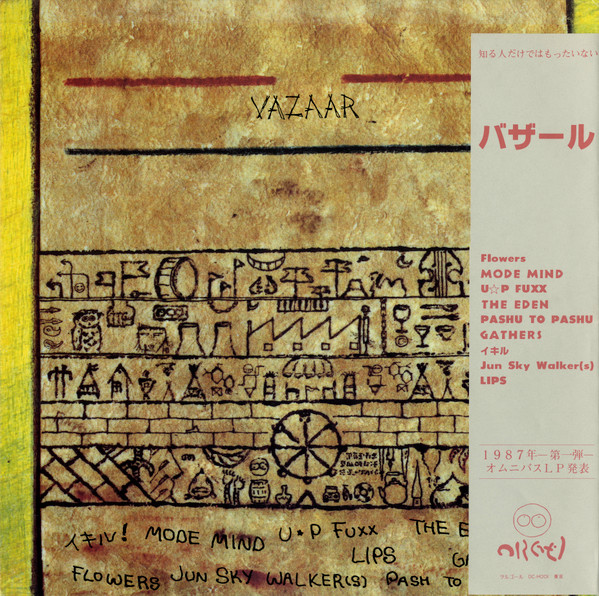 VAZAAR
イキル! MODE MIND U★P FUXX THE E
LIPS GA
FLOWERS JUN SKY WALKER(S) PASH TO
知る人だけではもったいない
バザール
Flowers
MODE MIND
U☆P FUXX
THE EDEN
PASHU TO PASHU
GATHERS
イキル
Jun Sky Walker(s)
LIPS
1987年―第一弾―
オムニバスLP発表